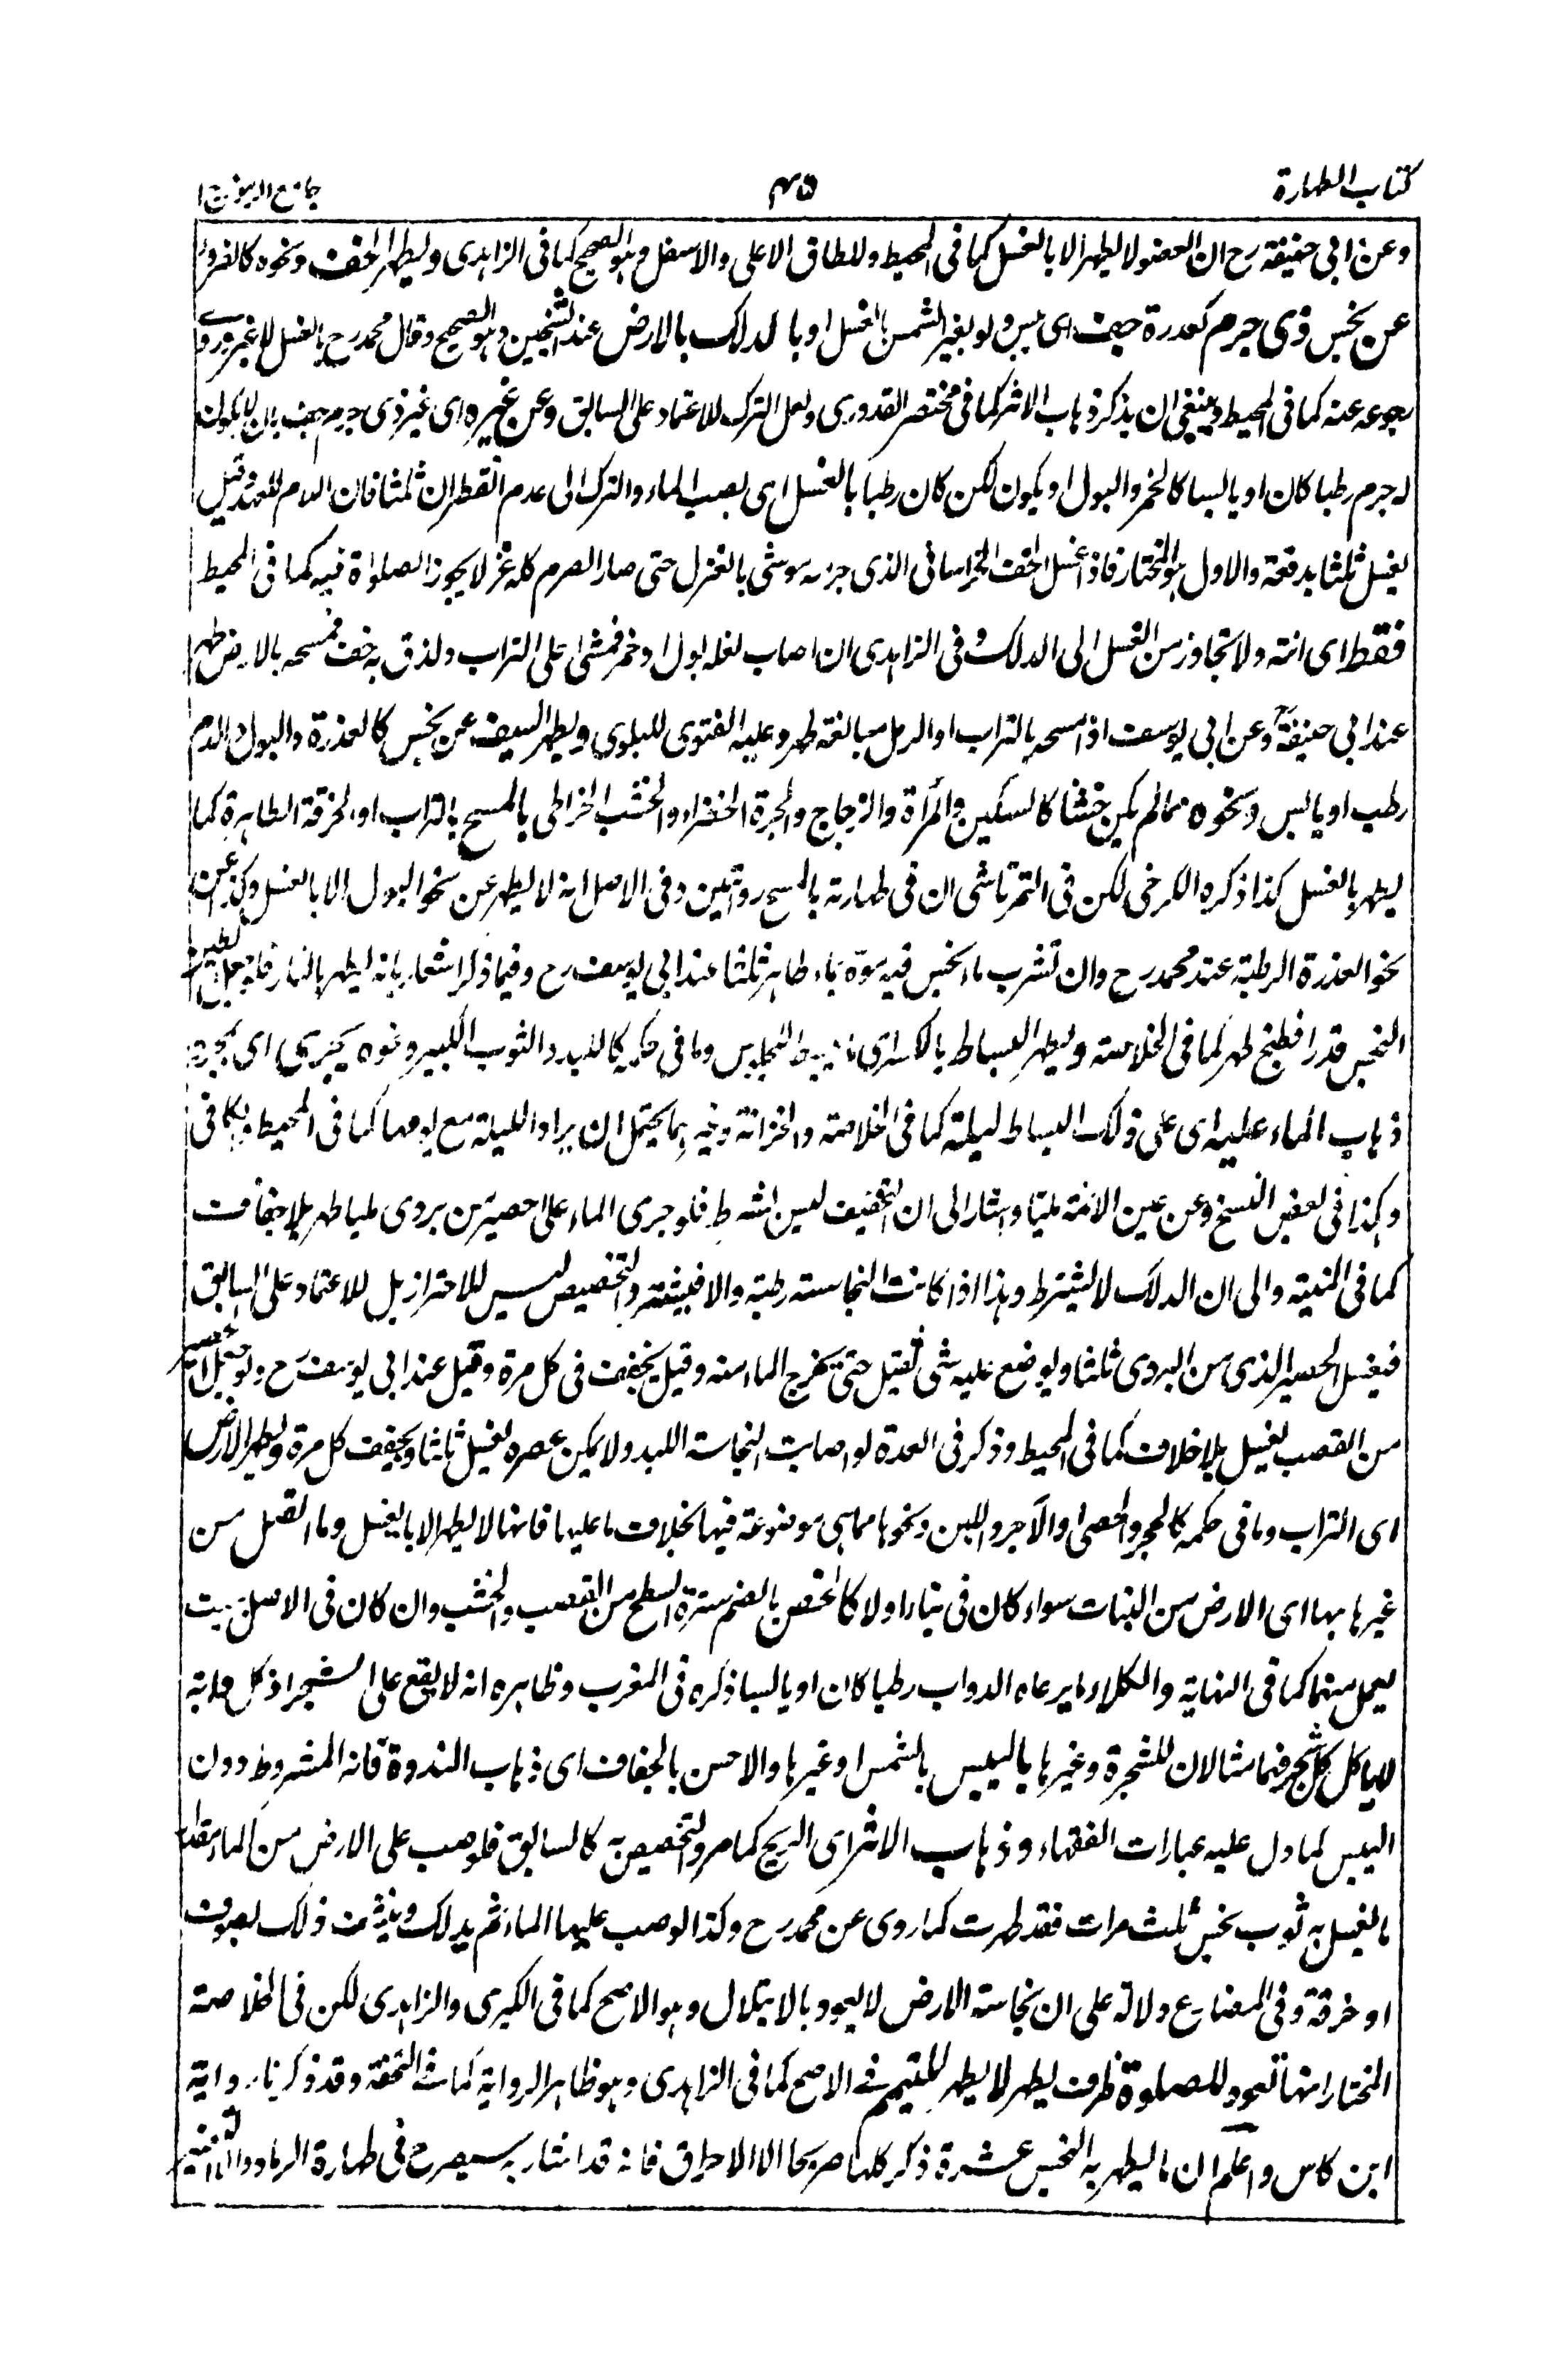 كتاب الطهارة
٤٥
جامع الرموز ج ا
وعن ابي حنيفة رح ان العضو لا يطهر الا بالغسل كما فى المحيط ولا طاق الاعلى والاسفل وهو الصحيح كما فى الزاهدى ويطهر الخف ونحوه كالفرو
عن نجس ذى جرم كعذرة جف اى يبس ولو بغير الشمس بالغسل او با لدلك بالارض عند الشيخين وهو الصحيح وقال محمد رح بالغسل لا غير وروى
رجوعه عنه كما فى المحيط وينبغى ان يذكر ذهاب الاثر كما فى مختصر القدورى ولعل الترك للاعتماد على السابق وعن غيره اى غير ذى جرم جف بان لا يكون
له جرم رطبا كان او يابسا كالخمر والبول او يكون لكن كان رطبا بالغسل اى بصب الماء والترك الى عدم القطران ثلثا فان اللام للعهد وقيل
يغسل ثلثا بدفعة والاول هو المختار فاذا غسل الخف الخراسانى الذى جرمه موشى بالغزل حتى صار الصرم كله غزلا يجوز الصلوة فيه كما فى المحيط
فقط اى انته ولا تجاوز من الغسل الى الدلك وفى الزاهدى ان اصاب نعله بول او خمر فمشى على التراب ولزق به خف فمسحه بالارض طهر
عند ابي حنيفة وعن ابي يوسف اذا مسحه بالتراب او الرمل مبالغة طهر وعليه الفتوى للبلوى ويطهر السيف عن نجس كالعذرة والبول والدم
رطب او يابس ونحوه مما لم يكن خشنا كالسكين والمرآة والزجاج والجرة الخضراء والخشب الخراطى بالمسح بالتراب او الخرقة الطاهرة كما
يطهر بالغسل كذا ذكره الكرخى لكن فى التمرتاشى ان فى طهارته بالمسح روايتين وفى الاصل انه لا يطهر عن نحو البول الا بالغسل وكذا عن
نحو العذرة الرطبة عند محمد رح وان تشرب ماء نجس فيه موّه بماء طاهر ثلثا عند ابي يوسف رح وفيما ذكر اشعار بانه يطهر بالنار فلو جعل الطين
النجس قدرا فطبخ طهر كما فى الخلاصة ويطهر البساط بالكسر اى ما يبسط للجلوس وما فى حكمه كاللبد والثوب الكبير ونحوه بجرى اى بجرد
ذهاب الماء عليه اى على ذلك البساط ليلة كما فى الخلاصة والخزانة وغيرهما يحتمل ان يراد الليلة مع يومها كما فى المحيط والكافى
وهكذا فى بعض النسخ وعن عين الائمة مليّا واشار الى ان التجفيف ليس بشرط فلو جرى الماء على حصير من بردى مليا طهر بلا جفاف
كما فى المنية والى ان الدلك لا يشترط وهذا اذا كانت النجاسة رطبة والا فيشترط والتخصيص ليس للاحتراز بل للاعتماد على السابق
فيغسل الحصير الذى من البردى ثلثا ويوضع عليه شئ ثقيل حتى يخرج الماء منه وقيل يجفف فى كل مرة وقيل عند ابي يوسف رح ولو جعل الحصير
من القصب يغسل بلا خلاف كما فى المحيط وذكر فى العدة لو اصابت النجاسة اللبد ولا يمكن عصره يغسل ثلثا ويجفف كل مرة ويطهر الارض
اى التراب وما فى حكمه كالحجر والحصى والآجر واللبن ونحوها مما هى موضوعة فيها بخلاف ما عليها فانها لا يطهر الا بالغسل وما اتصل من
غيرها بها اى الارض من النبات سواء كان فى بناء اولا كالخص بالضم سترة السطح من القصب والخشب وان كان فى الاصل بيت
يعمل منهما كما فى النهاية والكلاء ما يرعاه الدواب رطبا كان او يابسا ذكره فى المغرب وظاهره انه لا يقع على الشجر اذ كل دابة
لا ياكل كل شجر فهما مثالان للشجرة وغيرها باليبس بالشمس او غيرها والاحسن بالجفاف اى ذهاب الندوة فانه المشروط دون
اليبس كما دل عليه عبارات الفقهاء وذهاب الاثر اى الريح كما مر والتخصيص به كالسابق فلو صب على الارض من الماء مقدار
ما يغسل به ثوب نجس ثلث مرات فقد طهرت كما روى عن محمد رح وكذا لو صب عليها الماء ثم يدلك وينشف ذلك بصوف
او خرقة وفى المضارع دلالة على ان نجاسة الارض لا يعود بالابتلال وهو الاصح كما فى الكبرى والزاهدى لكن فى الخلاصة
المختار انها تعود للصلوة ظرف يطهر لا يطهر للتيمم فى الاصح كما فى الزاهدى وهو ظاهر الرواية كما فى التحفة وقد ذكرنا رواية
ابن كاس واعلم ان ما يطهر به النجس عشرة ذكر كلها صريحا الا الاحراق فانه قد اشار به سيصرح فى طهارة الرماد